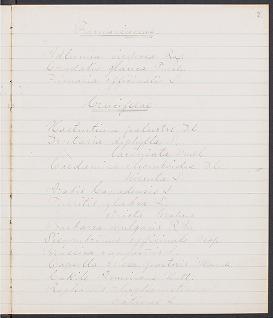 2
Fumariaceae
Adlumia cirrhosa Raf.
Corydalis glauca Pursh
Fumaria officinalis L
Cruciferae
Nasturtium palustre D C
Dentaria diphylla L
laciniata Muhl
Cardamine rhomboidea D C
hirsuta L
Arabis Canadensis L
Turritis glabra L
stricta
Barbarea vulgaris R Br
Sisymbrium officinale Scop
Brassica
Capsella Bursa pastoris
Cakile Americana Nutt.
Raphanus Raphanistrum
sativus L